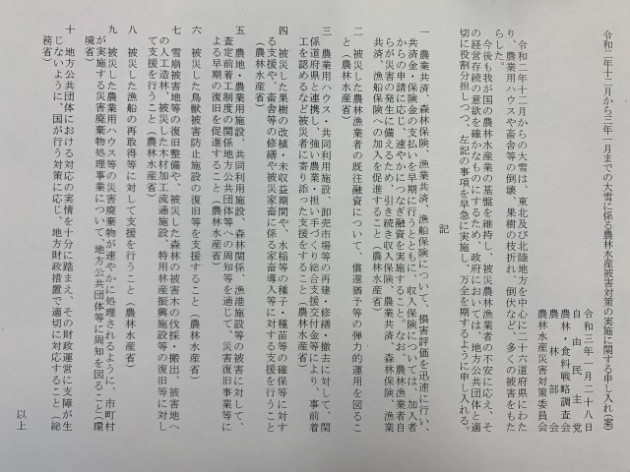 令和二年十二月から三年一月までの大雪に係る農林水産被害対策の実施に関する申し入れ（案）
令和三年一月二十八日
自由民主党
農林・食料戦略調査会
農林部会
農林水産災害対策委員会
令和二年十二月からの大雪は、東北及び北陸地方を中心に二十六道府県にわた
り、農業用ハウスや畜舎等の倒壊、果樹の枝折れ、倒伏など、多くの被害をもた
らした。
今後も我が国の農林水産業の基盤を維持し、被災農林漁業者の不安に応え、そ
の経営存続の意欲を確かなものにするため、政府においては、地方公共団体と適
切に役割分担しつつ、左記の事項を早急に実施し、万全を期するように申し入れる。
記
一 農業共済、森林保険、漁業共済、漁船保険について、損害評価を迅速に行い、
共済金・保険金の支払いを早期に行うとともに、収入保険については、加入者
からの申請に応じ、速やかにつなぎ融資を実施すること。なお、農林漁業者自
らが災害の発生に備えるため、引き続き収入保険、農業共済、森林保険、漁業
共済、漁船保険への加入を促進すること（農林水産省）
二 被災した農林漁業者の既往融資について、償還猶予等の弾力的運用を図るこ
と（農林水産省）
三 農業用ハウス・共同利用施設、卸売市場等の再建・修繕・撤去に対して、関
係道府県と連携し、強い農業・担い手づくり総合支援交付金等により、事前着
工を認めるなど被災者に寄り添った支援をすること（農林水産省）
四 被災した果樹の改植・未収益期間や、水稲等の種子・種苗等の確保等に対す
る支援、畜舎等の修繕や被災家畜に係る家畜導入等に対する支援を行うこと
（農林水産省）
五 農地・農業用施設、共同利用施設、森林関係・漁港施設等の被害に対して、
査定前着工制度の関係地方公共団体等への周知等を通じて、災害復旧事業等に
よる早期の復旧を促進すること（農林水産省）
六 被災した鳥獣被害防止施設の復旧等を支援すること（農林水産省）
七 雪崩被害地等の復旧整備や、被災した森林の被害木の伐採・搬出、被害地へ
の人工造林、被災した木材加工流通施設、特用林産振興施設等の復旧等に対し
て支援を行うこと（農林水産省）
八 被災した漁船の再取得等に対して支援を行うこと（農林水産省）
九 被災した農業用ハウス等の災害廃棄物が速やかに処理されるように、市町村
が実施する災害廃棄物処理事業について、地方公共団体等に周知を図ること（環
境省）
十 地方公共団体における対応の実情を十分に踏まえ、その財政運営に支障が生
じないように、国が行う対策に応じ、地方財政措置で適切に対応すること（総
務省）
以上